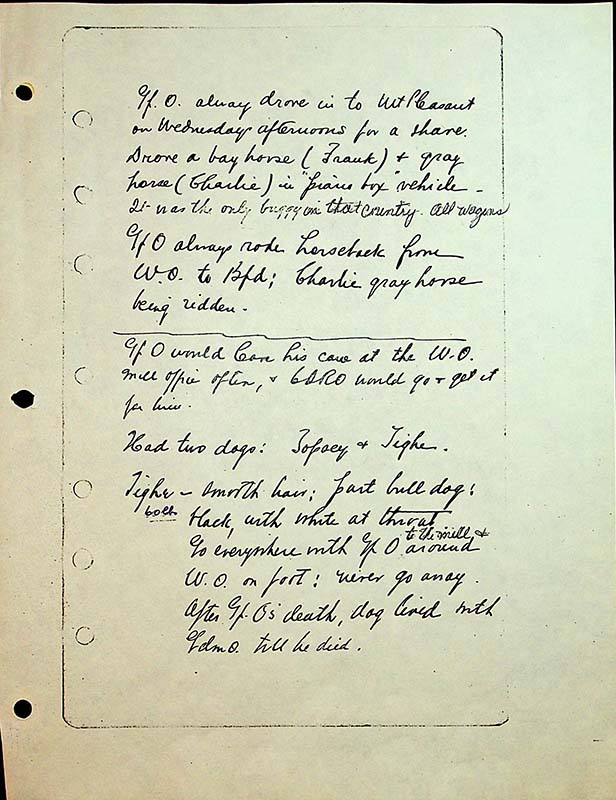 Gf. O. alway drove in to Mt Pleasant
on Wednesdays afternoons for a shave.
Drove a bay horse (Frank) & gray
horse (Charlie) in "piano box" vehicle -
It was the only buggy in that country. All wagons
Gf O always rode horseback from
W.O. to Bfd; Charlie gray horse
being ridden.
Gf O would leave his cane at the W.O.
mill office often, & would go & get it
for him.
Had two dogs: & Tighe.
Tighe - smooth hair; part bull dog;
both
black, with white at throat
to the mill, &
Go everywhere with Gf O around
W.O. on foot; never go away.
After Gf. O's death, dog lived with
Gdmo. till he died.